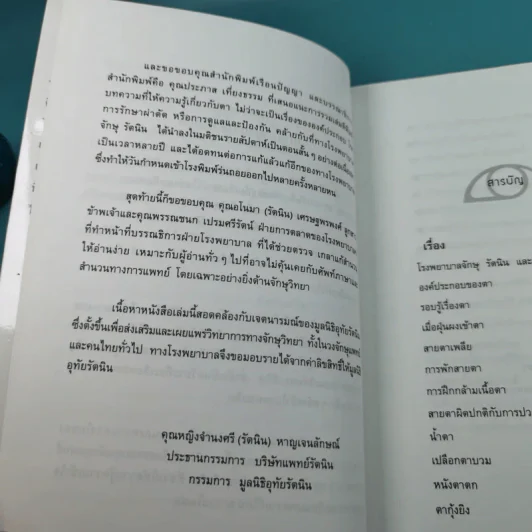 และขอขอบคุณสำนักพิมพ์เรือนปัญญา และบรรณาธิ
สำนักพิมพ์คือ คุณประภาส เที่ยงธรรม ที่เสนอแนะการรวมเล่ม
บทความที่ให้ความรู้เกี่ยวกับตา ไม่ว่าจะเป็นเรื่ององค์ประกอบ
การรักษาผ่าตัด หรือการดูแลและป้องกัน คล้ายกับที่ทางโรงพยาบาล
จักษุ รัตนิน ได้นำลงในมติชนรายสัปดาห์เป็นตอนสั้น ๆ อย่างต่อเนื่อง
เป็นเวลาหลายปี และได้อดทนต่อการแก้แล้วแก้อีกของทางโรงพยาบาล
ซึ่งทำให้วันกำหนดเข้าโรงพิมพ์ร่นถอยออกไปหลายครั้งหลายหน
สุดท้ายนี้ก็ขอขอบคุณ คุณอโนมา (รัตนิน) เศรษฐพรพงศ์
ข้าพเจ้าและคุณพรรณชนก เปรมศรีรัตน์ ฝ่ายการตลาดของโรงพยาบาล
ที่ทำหน้าที่บรรณธิการฝ่ายโรงพยาบาล ที่ได้ช่วยตรวจ เกลาแก้สำนวน
ให้อ่านง่าย เหมาะกับผู้อ่านทั่ว ๆ ไปที่อาจไม่คุ้นเคยกับศัพท์ภาษาและ
สำนวนทางการแพทย์ โดยเฉพาะอย่างยิ่งด้านจักษุวิทยา
เนื้อหาหนังสือเล่มนี้สอดคล้องกับเจตนารมณ์ของมูลนิธิอุทัยรัตนิน
ซึ่งตั้งขึ้นเพื่อส่งเสริมและเผยแพร่วิทยาการทางจักษุวิทยา ทั้งในวงจักษุแพทย์
และคนไทยทั่วไป ทางโรงพยาบาลจึงขอมอบรายได้จากค่าลิขสิทธิ์ให้มูลนิธิ
อุทัยรัตนิน
คุณหญิงจำนงศรี (รัตนิน) หาญเจนลักษณ์
ประธานกรรมการ บริษัทแพทย์รัตนิน
กรรมการ มูลนิธิอุทัยรัตนิน
สารบัญ
เรื่อง
โรงพยาบาลจักษุ รัตนิน และ
องค์ประกอบของตา
รอบรู้เรื่องตา
เมื่อฝุ่นผงเข้าตา
สายตาเพลีย
การพักสายตา
การฝึกกล้ามเนื้อตา
สายตาผิดปกติกับการปวด
น้ำตา
เปลือกตาบวม
หนังตาตก
ตากุ้งยิง